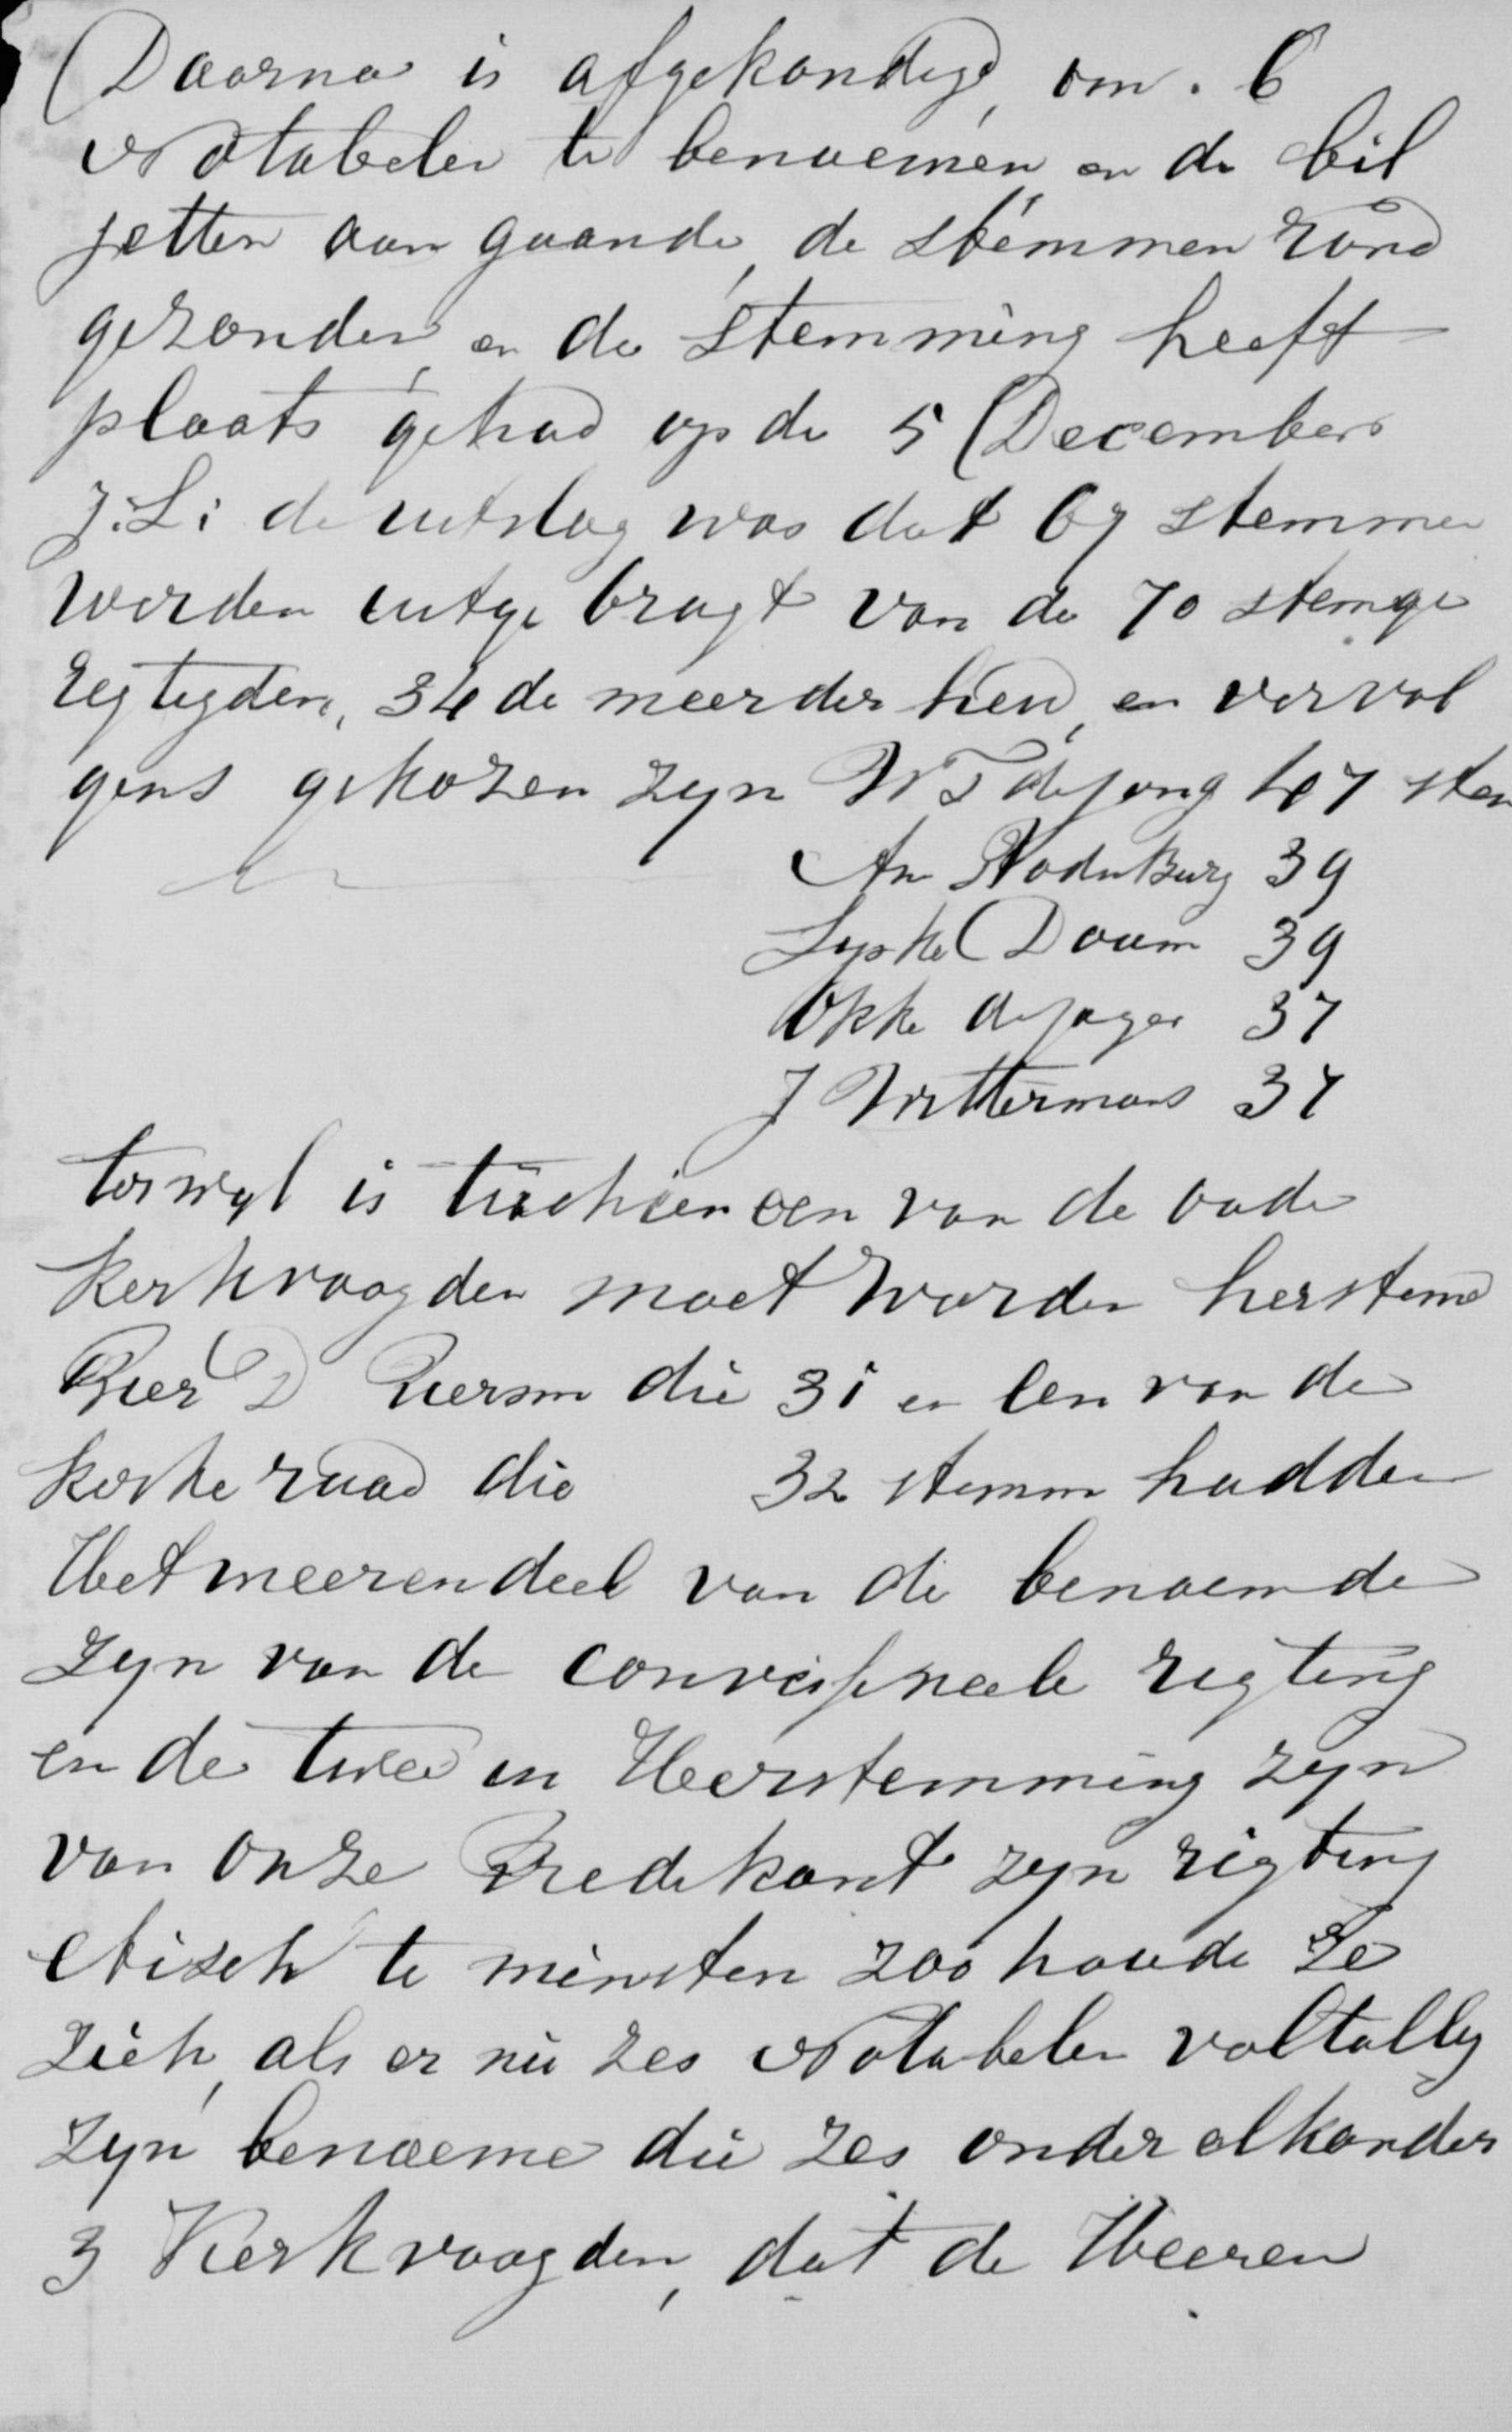 Daarna is afgekondigd, om. 6
Notabelen te benoemen en de bil
jetten aan gaande, de stemmen rond
gezonden, en de stemming heeft
plaats gehad op de 5 December
J.L: de uitslag was dat 67 stemmen
werden uitge bragt van de 70 stemge
regtigden, 34 de meerder heid, en vervol
gens gekozen zyn W T de jong 47 stem
An Rodenburg 39
Lyske Doum 39
Okke de jager 37
J Wettermans 37
terwyl is tusschen een van de oude
kerkvoogden moet worden herstemd
Pier D Piersm die 31 en een van de
kerke raad die 32 stemm hadden
Het meerendeel van de benoemde
zyn van de confessineele rigting
en de twee in Heerstemming zyn
van onze Predikant zyn rigting
etisch te minsten zoo houde ze
zich, als er nu zes Notabelen voltallig
zyn benoeme die zes onder elkander
3 Kerkvoogden, dat de Heeren